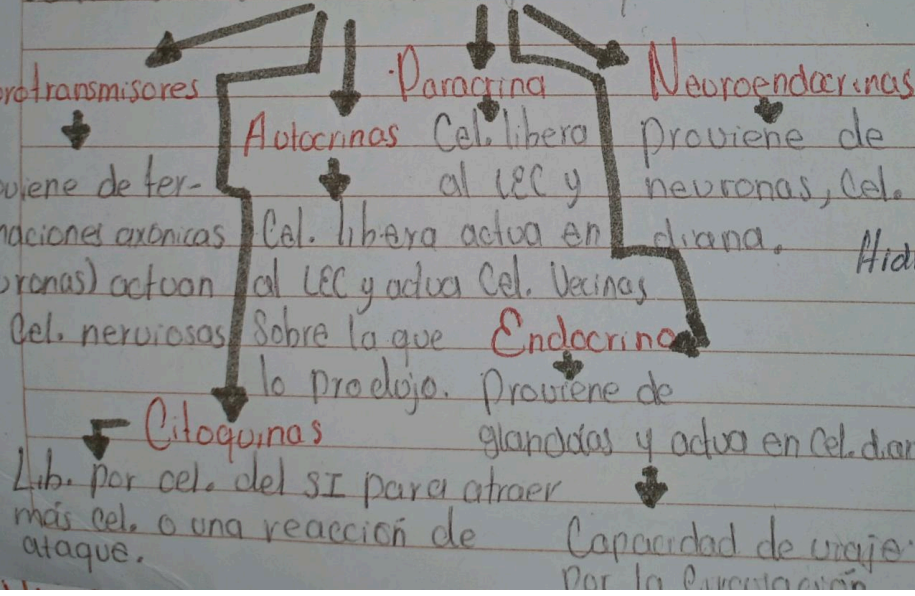 rotransmisores
viene de ter-
naciones axónicas
ronas) actuan
Cel. nerviosas
Autocrinas
Cel. libera
al LEC y actua
Sobre la que
lo produjo.
Paracrina
Cel. libera
al LEC y
actua en
Cel. Vecinas
Neuroendocrinas
Proviene de
neuronas, Cel.
diana.
Hid
Endocrina
Proviene de
glandulas y actua en Cel. dian
Capacidad de viaje
por la circulación
Citoquinas
Lib. por cel. del SI para atraer
más cel. o una reacción de
ataque.